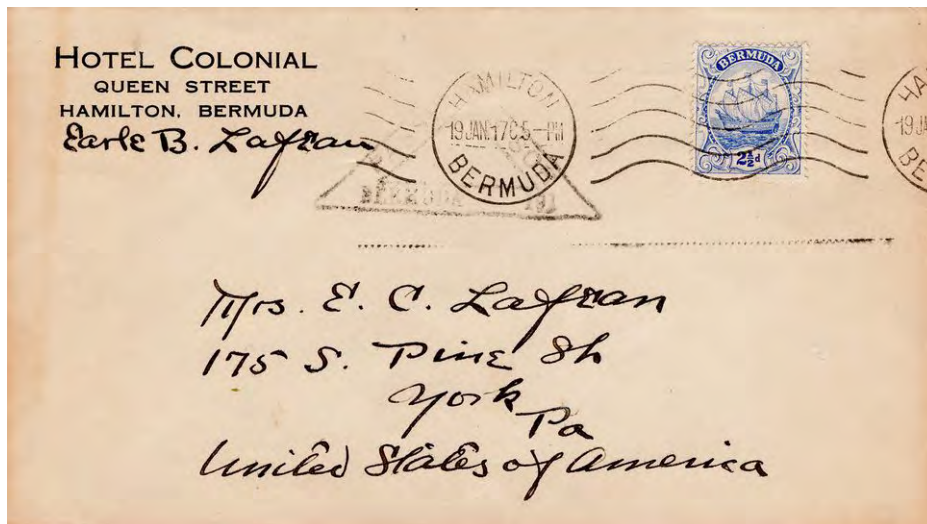 HOTEL COLONIAL
QUEEN STREET
HAMILTON, BERMUDA
Earle B. Lafean
HAMILTON
19 JAN. 17 C 5 - PM
BERMUDA
BERMUDA
2½d
BERMUDA 191
Mrs. E. C. Lafean
175 S. Pine St
York
Pa
United States of America